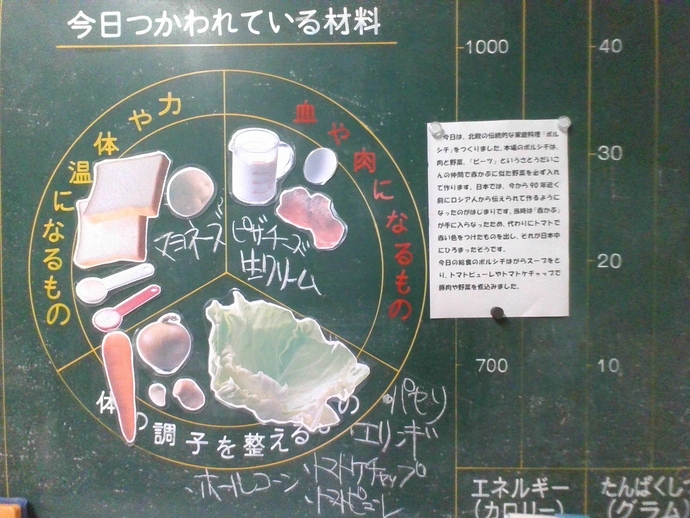 今日つかわれている材料
力や体温になるもの
血や肉になるもの
マヨネーズ
ピザチーズ
生クリーム
体の調子を整えるもの
パセリ
エリンギ
トマトケチャップ
ホールコーン
トマトピューレ
今日は、北欧の伝統的な家庭料理「ボル
シチ」をつくりました。本場のボルシチは、
肉と野菜、「ビーツ」というさとうだいこ
んの仲間で赤かぶに似た野菜を必ず入れ
て作ります。日本では、今から90年近く
前にロシア人から伝えられて作るように
なったのがはじまりです。当時は「赤かぶ」
が手に入らなったため、代わりにトマトで
赤い色をつけたものを出し、それが日本中
にひろまったそうです。
今日の給食のボルシチはがらスープをと
り、トマトピューレやトマトケチャップで
豚肉や野菜を煮込みました。
1000
700
エネルギー
(カロリー)
40
30
20
10
たんぱくし
(グラム)